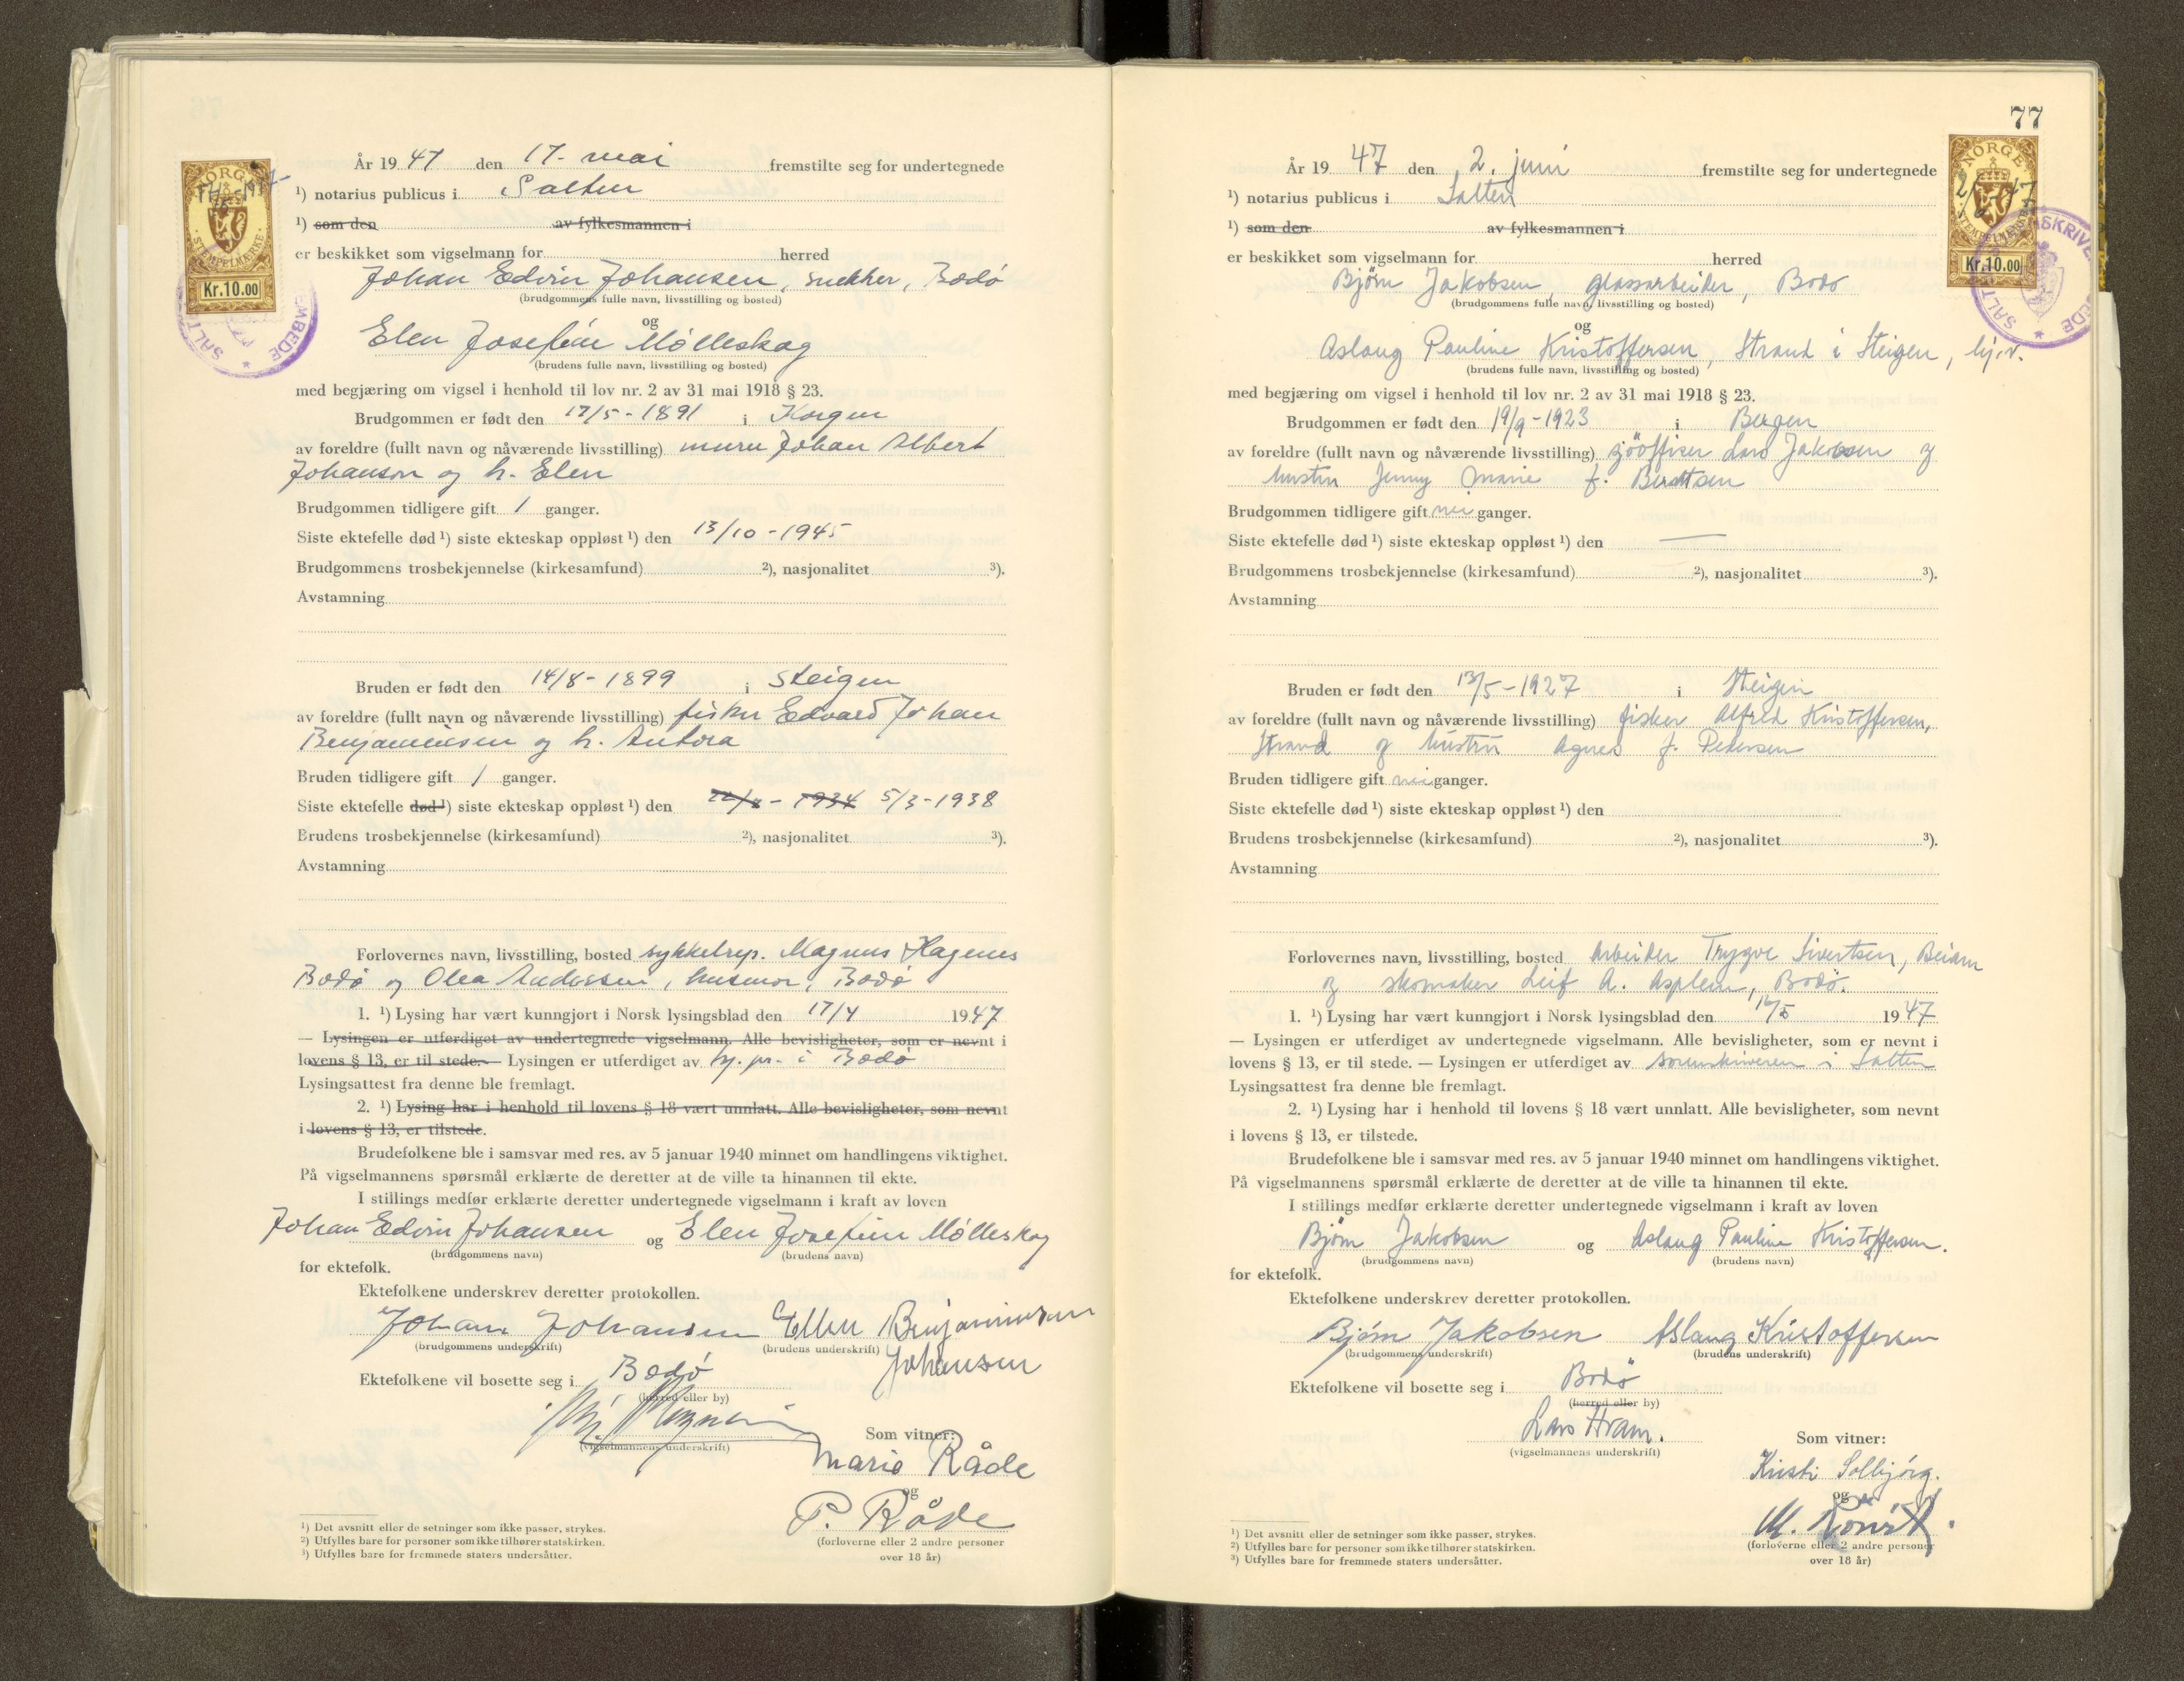 År 1947 den 17. mai fremstilte seg for undertegnede
¹) notarius publicus i Salten
¹) som den av fylkesmannen i
er beskikket som vigselmann for herred
Johan Edvin Johansen, snekker, Bodø
(brudgommens fulle navn, livsstilling og bosted)
og
Elen Josefine Mølleskog
(brudens fulle navn, livsstilling og bosted)
med begjæring om vigsel i henhold til lov nr. 2 av 31 mai 1918 § 23.
Brudgommen er født den 17/5-1891 i Korgen
av foreldre (fullt navn og nåværende livsstilling) murer Johan Albert
Johanson og h. Elen
Brudgommen tidligere gift 1 ganger.
Siste ektefelle død ¹) siste ekteskap oppløst ¹) den 13/10-1945
Brudgommens trosbekjennelse (kirkesamfund) ²), nasjonalitet ³).
Avstamning
Bruden er født den 14/8-1899 i Steigen
av foreldre (fullt navn og nåværende livsstilling) fisker Edvard Johan
Benjaminsen og h. Antora
Bruden tidligere gift 1 ganger.
Siste ektefelle død ¹) siste ekteskap oppløst ¹) den 5/3-1938
Brudens trosbekjennelse (kirkesamfund) ²), nasjonalitet ³).
Avstamning
Forlovernes navn, livsstilling, bosted sykkelrep. Magnus Hagenes
Bodø og Olea Anderssen, husmor, Bodø
1. ¹) Lysing har vært kunngjort i Norsk lysingsblad den 17/4 1947
— Lysingen er utferdiget av undertegnede vigselmann. Alle bevisligheter, som er nevnt i
lovens § 13, er til stede. — Lysingen er utferdiget av by.pr. i Bodø
Lysingsattest fra denne ble fremlagt.
2. ¹) Lysing har i henhold til lovens § 18 vært unnlatt. Alle bevisligheter, som nevnt
i lovens § 13, er tilstede.
Brudefolkene ble i samsvar med res. av 5 januar 1940 minnet om handlingens viktighet.
På vigselmannens spørsmål erklærte de deretter at de ville ta hinannen til ekte.
I stillings medfør erklærte deretter undertegnede vigselmann i kraft av loven
Johan Edvin Johansen og Elen Josefine Mølleskog
(brudgommens navn) (brudens navn)
for ektefolk.
Ektefolkene underskrev deretter protokollen.
Johan Johansen Ellen Benjaminsen
(brudgommens underskrift) (brudens underskrift) Johansen
Ektefolkene vil bosette seg i Bodø
(herred eller by)
(vigselmannens underskrift)
Som vitner:
Marie Råde
og
P. Råde
(forloverne eller 2 andre personer
over 18 år)
¹) Det avsnitt eller de setninger som ikke passer, strykes.
²) Utfylles bare for personer som ikke tilhører statskirken.
³) Utfylles bare for fremmede staters undersåtter.
NORGE
STEMPELMERKE
Kr.10.00
77
År 1947 den 2. juni fremstilte seg for undertegnede
¹) notarius publicus i Salten
¹) som den av fylkesmannen i
er beskikket som vigselmann for herred
Bjørn Jakobsen, glassarbeider, Bodø
(brudgommens fulle navn, livsstilling og bosted)
og
Aslaug Pauline Kristoffersen, Strand i Steigen, hj.v.
(brudens fulle navn, livsstilling og bosted)
med begjæring om vigsel i henhold til lov nr. 2 av 31 mai 1918 § 23.
Brudgommen er født den 19/9-1923 i Bergen
av foreldre (fullt navn og nåværende livsstilling) sjöoffiser Lars Jakobsen og
hustru Jenny Marie f. Berntsen
Brudgommen tidligere gift nei ganger.
Siste ektefelle død ¹) siste ekteskap oppløst ¹) den —
Brudgommens trosbekjennelse (kirkesamfund) ²), nasjonalitet ³).
Avstamning
Bruden er født den 13/5-1927 i Steigen
av foreldre (fullt navn og nåværende livsstilling) fisker Alfred Kristoffersen,
Strand og hustru Agnes f. Pedersen
Bruden tidligere gift nei ganger.
Siste ektefelle død ¹) siste ekteskap oppløst ¹) den
Brudens trosbekjennelse (kirkesamfund) ²), nasjonalitet ³).
Avstamning
Forlovernes navn, livsstilling, bosted arbeider Trygve Sivertsen, Beiarn
og skomaker Leif A. Asplem, Bodø.
1. ¹) Lysing har vært kunngjort i Norsk lysingsblad den 16/5 1947
— Lysingen er utferdiget av undertegnede vigselmann. Alle bevisligheter, som er nevnt i
lovens § 13, er til stede. — Lysingen er utferdiget av sorenskriveren i Salten
Lysingsattest fra denne ble fremlagt.
2. ¹) Lysing har i henhold til lovens § 18 vært unnlatt. Alle bevisligheter, som nevnt
i lovens § 13, er tilstede.
Brudefolkene ble i samsvar med res. av 5 januar 1940 minnet om handlingens viktighet.
På vigselmannens spørsmål erklærte de deretter at de ville ta hinannen til ekte.
I stillings medfør erklærte deretter undertegnede vigselmann i kraft av loven
Bjørn Jakobsen og Aslaug Pauline Kristoffersen.
(brudgommens navn) (brudens navn)
for ektefolk.
Ektefolkene underskrev deretter protokollen.
Bjørn Jakobsen Aslaug Kristoffersen
(brudgommens underskrift) (brudens underskrift)
Ektefolkene vil bosette seg i Bodø
(herred eller by)
Lars
(vigselmannens underskrift)
Som vitner:
Kristi Solbjörg.
og
M.
(forloverne eller 2 andre personer
over 18 år)
¹) Det avsnitt eller de setninger som ikke passer, strykes.
²) Utfylles bare for personer som ikke tilhører statskirken.
³) Utfylles bare for fremmede staters undersåtter.
NORGE
STEMPELMERKE
Kr.10.00